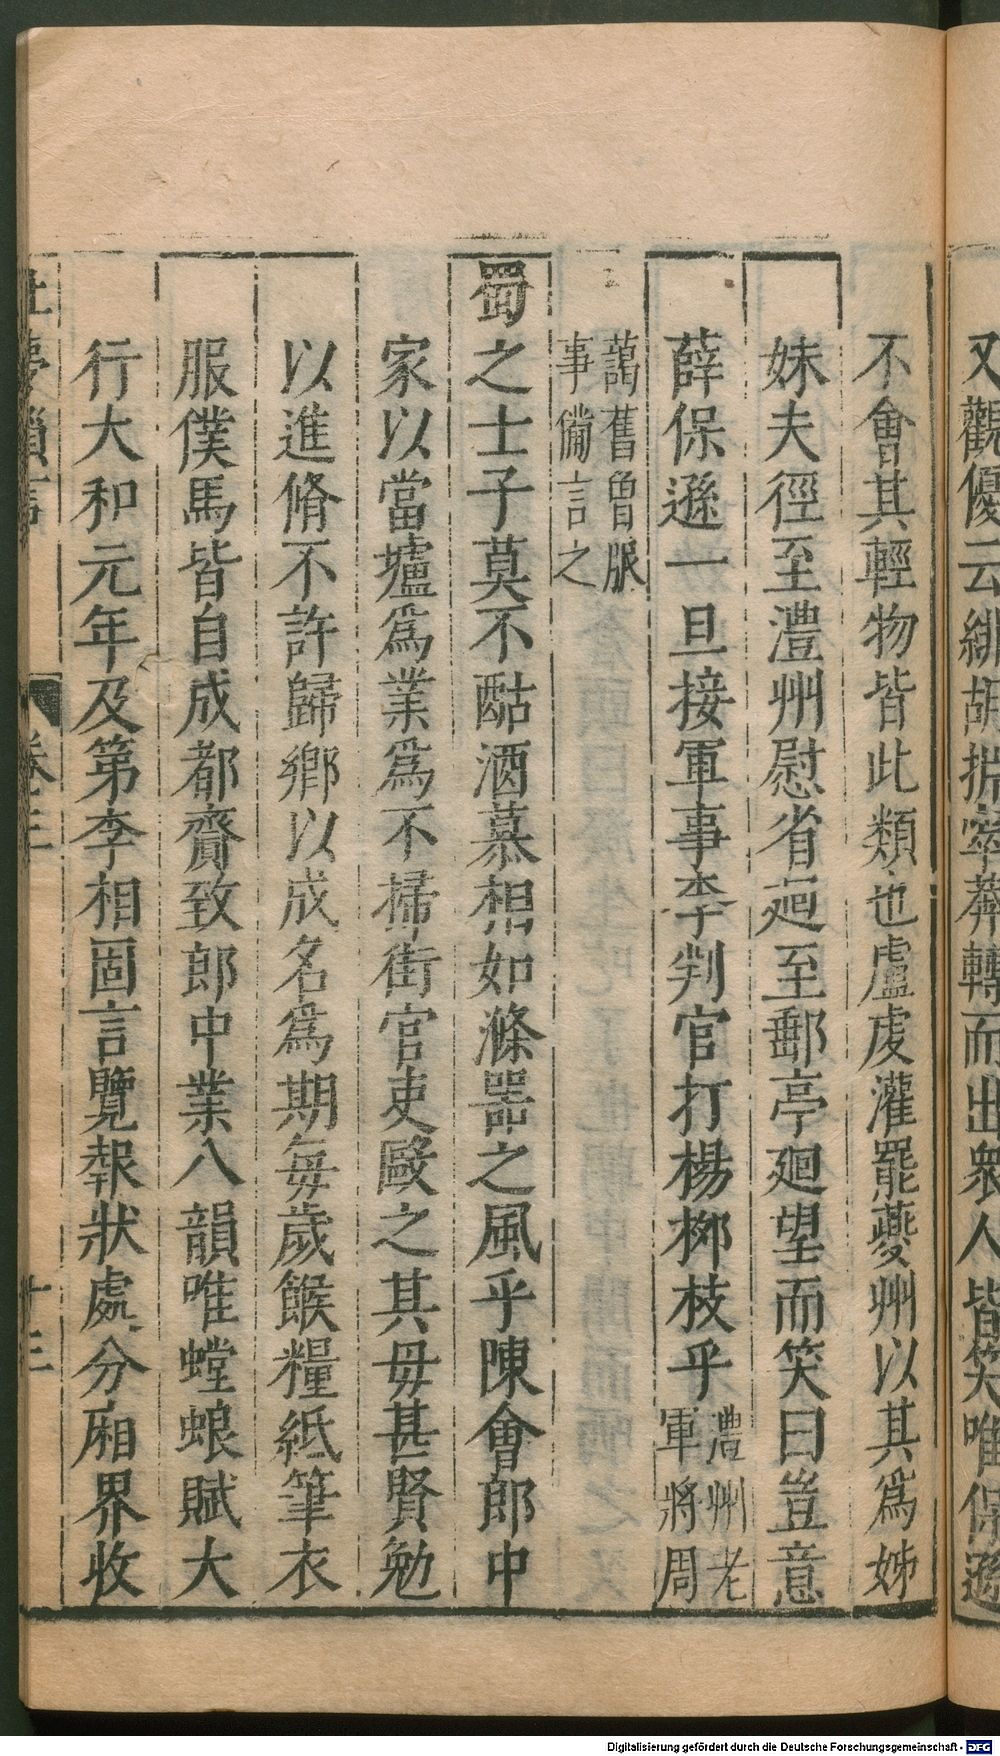 又觀優云緋胡
轉而出衆人皆笑唯保遜
不會其輕物皆此類也盧虔灌罷夔州以其爲姊
妹夫徑至澧州慰省廻至郵亭廻望而笑曰豈意
薛保遜一旦接軍事李判官打楊柳枝乎澧州老
軍將周
藹舊曾服
事備言之
蜀之士子莫不酤酒慕相如滌器之風乎陳會郎中
家以當壚爲業爲不掃街官吏毆之其毋甚賢勉
以進脩不許歸鄉以成名爲期每歲餱糧紙筆衣
服僕馬皆自成都齎致郎中業八韻唯螳蜋賦大
行大和元年及第李相固言覽報狀處分廂界收
卷三
十三
Digitalisierung gefördert durch die Deutsche Forschungsgemeinschaft - DFG